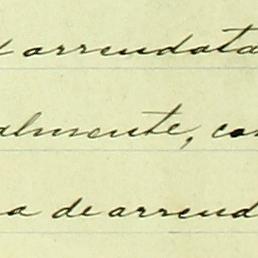 arrendata
almente, co
a de arrend